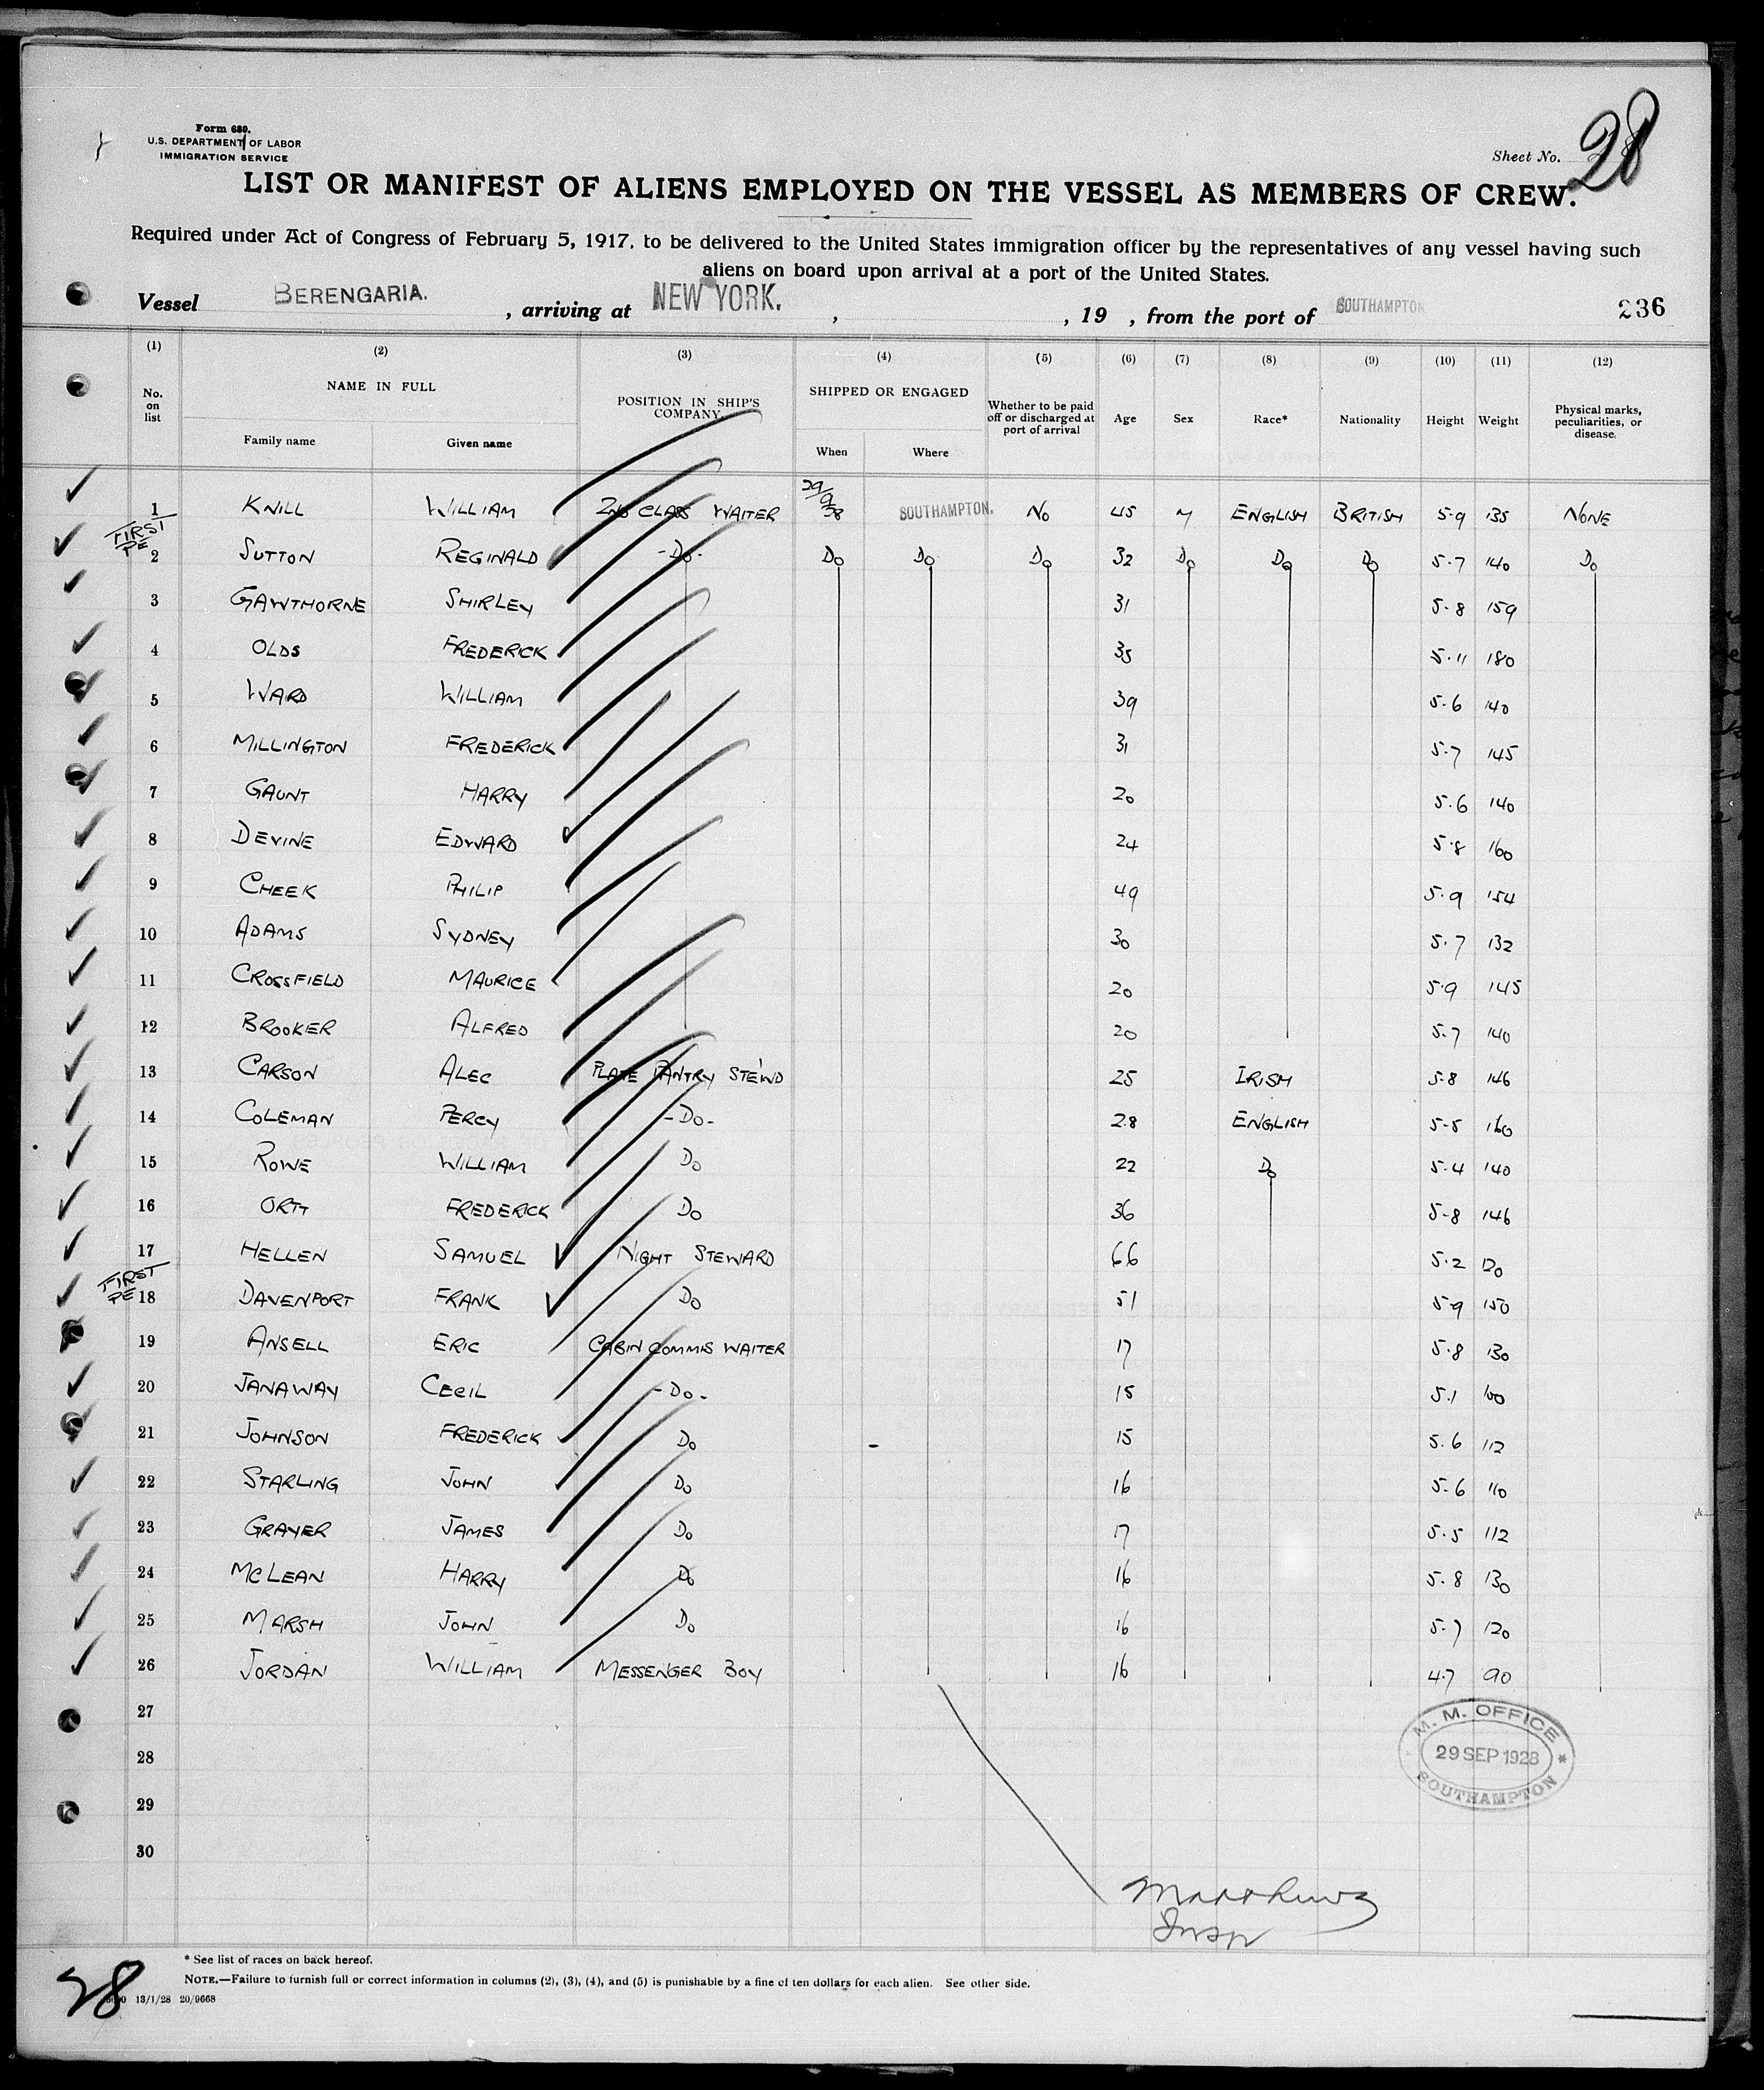 Form 680.
U.S. DEPARTMENT OF LABOR
IMMIGRATION SERVICE
Sheet No. 28
LIST OR MANIFEST OF ALIENS EMPLOYED ON THE VESSEL AS MEMBERS OF CREW.
Required under Act of Congress of February 5, 1917, to be delivered to the United States immigration officer by the representatives of any vessel having such
aliens on board upon arrival at a port of the United States.
Vessel BERENGARIA. , arriving at NEW YORK. , , 19 , from the port of SOUTHAMPTON 236
(1) (2) (3) (4) (5) (6) (7) (8) (9) (10) (11) (12)
No. on list NAME IN FULL Family name Given name POSITION IN SHIP'S COMPANY. SHIPPED OR ENGAGED When Where Whether to be paid off or discharged at port of arrival Age Sex Race* Nationality Height Weight Physical marks, peculiarities, or disease.
1 KNILL WILLIAM 2ND CLASS WAITER 29/9/28 SOUTHAMPTON. NO 45 M ENGLISH BRITISH 5-9 135 NONE
FIRST PE 2 SUTTON REGINALD -Do- Do Do Do 32 Do Do Do 5-7 140 Do
3 GAWTHORNE SHIRLEY 31 5-8 159
4 OLDS FREDERICK 35 5-11 180
5 WARD WILLIAM 39 5-6 140
6 MILLINGTON FREDERICK 31 5-7 145
7 GAUNT HARRY 20 5-6 140
8 DEVINE EDWARD 24 5-8 160
9 CHEEK PHILIP 49 5-9 154
10 ADAMS SYDNEY 30 5-7 132
11 CROSSFIELD MAURICE 20 5-9 145
12 BROOKER ALFRED 20 5-7 140
13 CARSON ALEC PLATE PANTRY STEWD 25 IRISH 5-8 146
14 COLEMAN PERCY -Do- 28 ENGLISH 5-5 160
15 ROWE WILLIAM Do 22 Do 5-4 140
16 ORTT FREDERICK Do 36 5-8 146
17 HELLEN SAMUEL NIGHT STEWARD 66 5-2 120
FIRST PE 18 DAVENPORT FRANK Do 51 5-9 150
19 ANSELL ERIC CABIN COMMIS WAITER 17 5-8 130
20 JANAWAY CECIL -Do- 15 5-1 100
21 JOHNSON FREDERICK Do 15 5-6 112
22 STARLING JOHN Do 16 5-6 110
23 GRAYER JAMES Do 17 5-5 112
24 MCLEAN HARRY Do 16 5-8 130
25 MARSH JOHN Do 16 5-7 120
26 JORDAN WILLIAM MESSENGER BOY 16 4-7 90
27
M. M. OFFICE
28
29 SEP 1928
SOUTHAMPTON
29
30
Matthews
Insp
* See list of races on back hereof.
NOTE.—Failure to furnish full or correct information in columns (2), (3), (4), and (5) is punishable by a fine of ten dollars for each alien. See other side.
28
13/1/28 20/9668